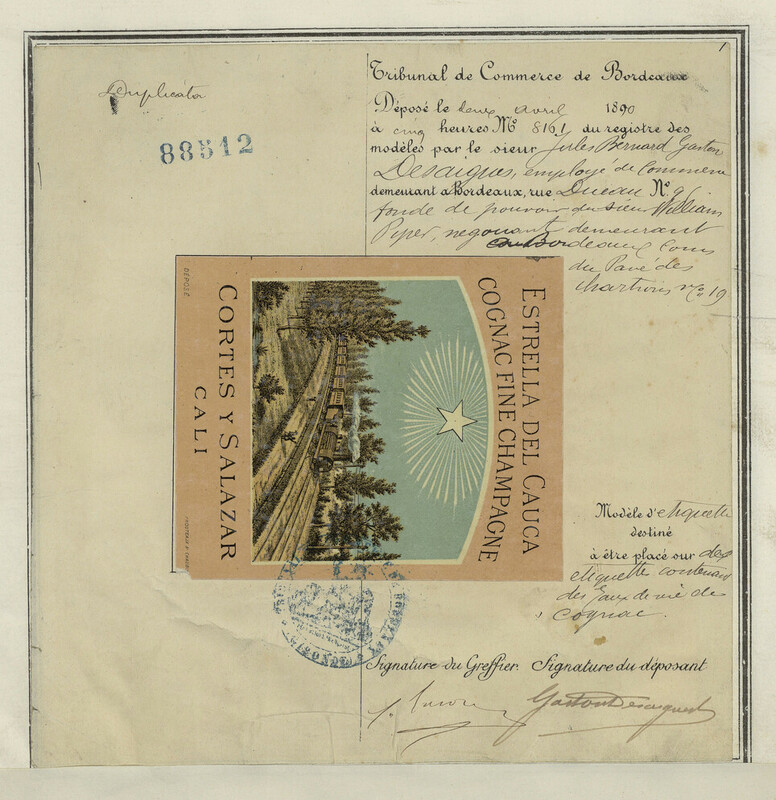 1
Duplicata
88512
Tribunal de Commerce de Bordeaux
Déposé le deux avril 1890
à cinq heures. No 8161 du registre des
modèles par le sieur Jules Bernard Gaston
Desaigues, employé de Commerce
demeurant à Bordeaux, rue Ducau No 9
fondé de pouvoir du sieur William
Piper, négociant demeurant
Bordeaux Cours
du Pavé des
Chartrons no 19
DÉPOSÉ
ESTRELLA DEL CAUCA
COGNAC FINE CHAMPAGNE
CORTES Y SALAZAR
CALI
Modèle d'etiquette
destiné
à être placé sur des
etiquette contenant
des Eaux de vie de
Cognac.
GIRONDE
Signature du Greffier. Signature du déposant